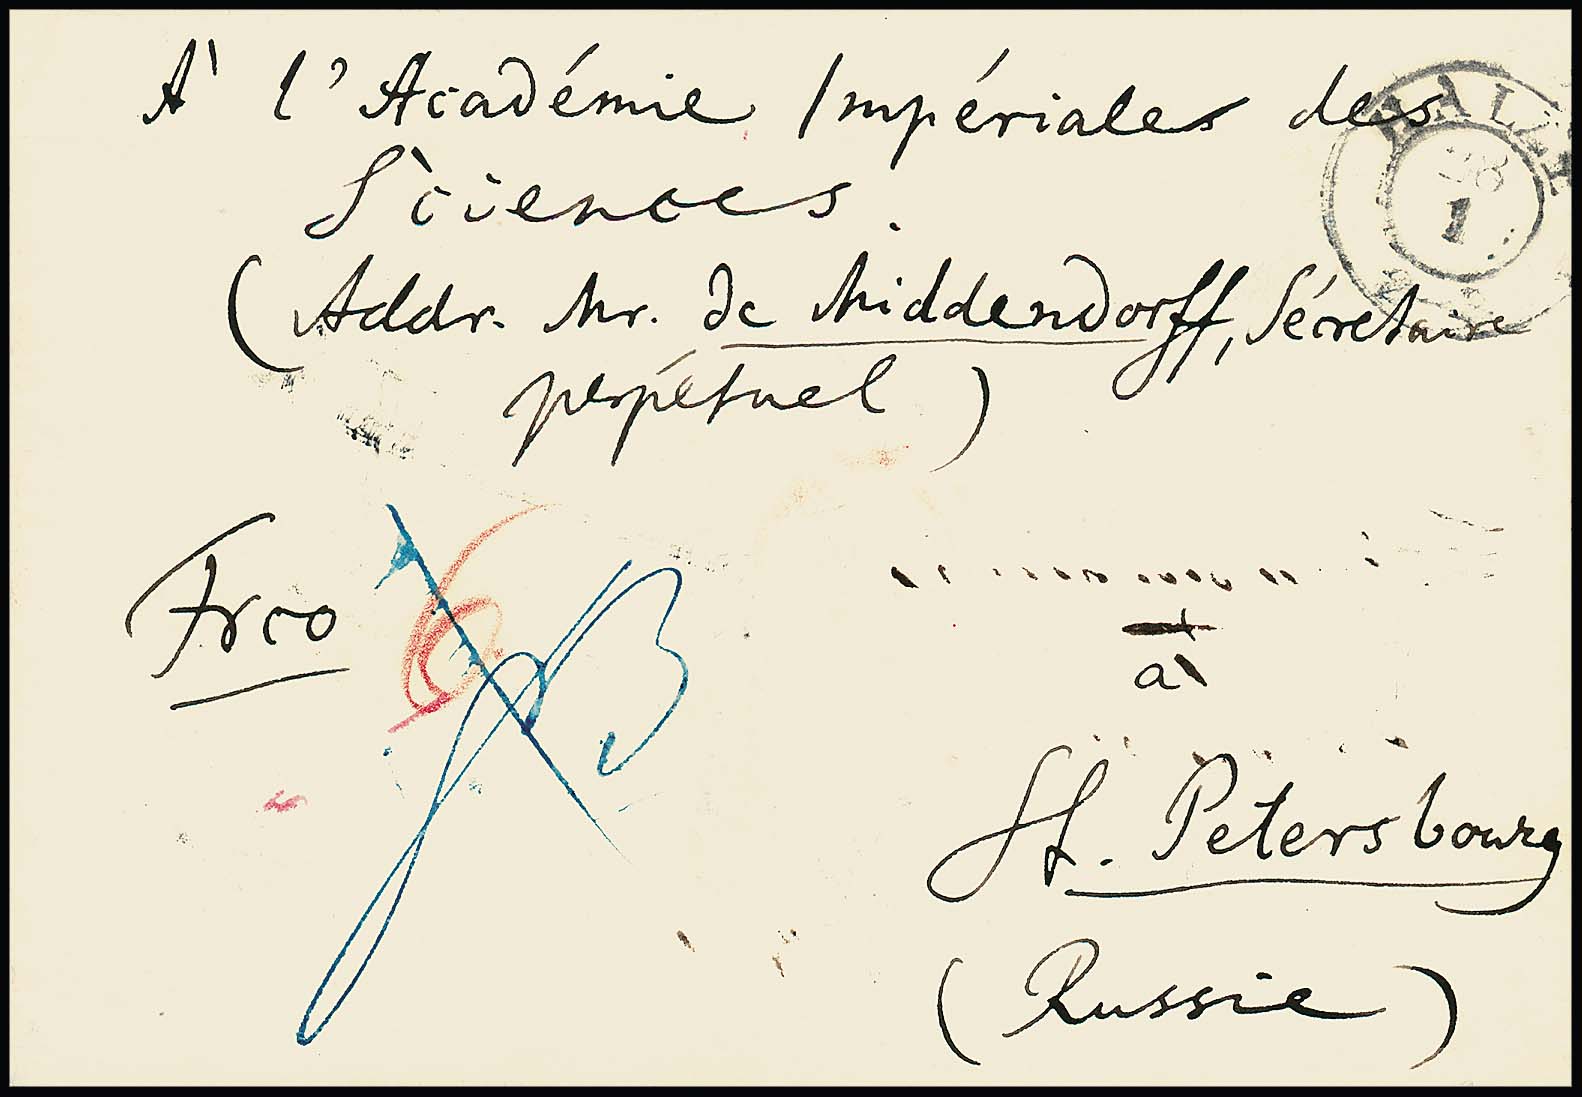 À l'Académie Impériales des
Sciences.
(Addr. Mr. de Middendorff, Sécretaire
perpétuel)
Frco
6
à
St. Petersbourg
(Russie)
28
1